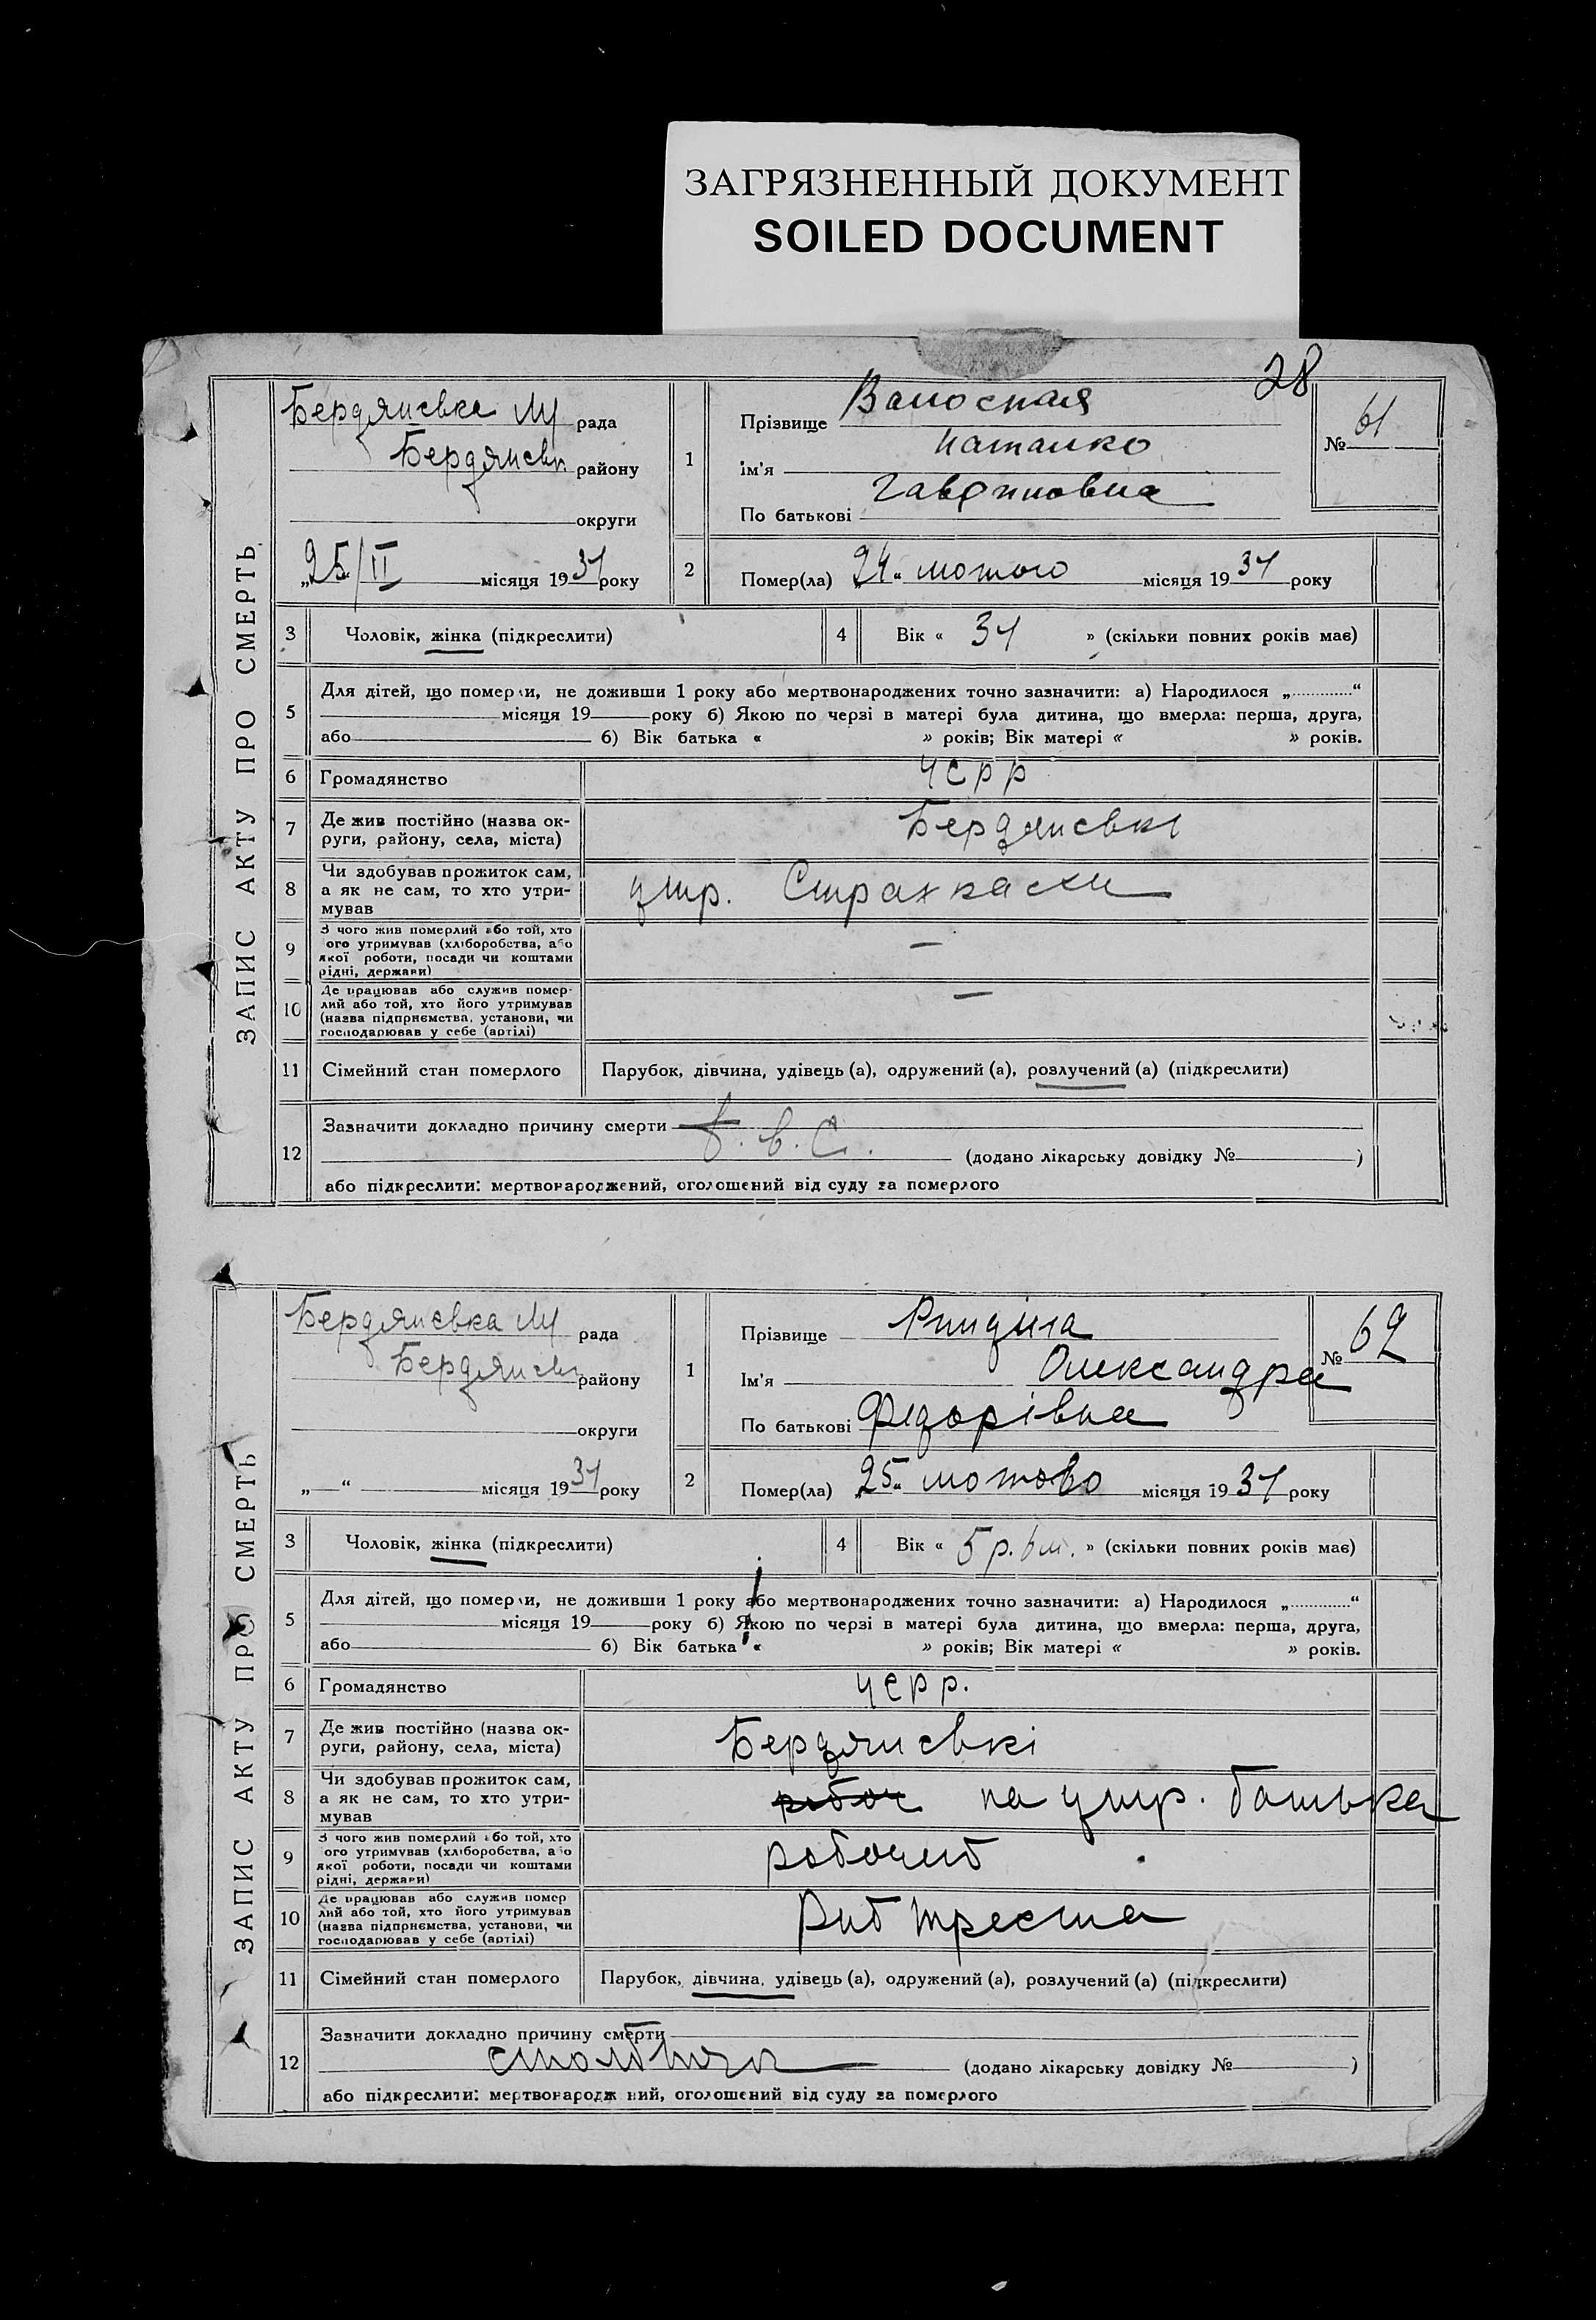 ЗАГРЯЗНЕННЫЙ ДОКУМЕНТ
SOILED DOCUMENT
28
ЗАПИС АКТУ ПРО СМЕРТЬ
Бердянська рада
Бердянськ району
округи
„25/II місяця 1934 року
1
Прізвище
ім'я Наталко
По батькові
№ 61
2
Помер(ла) 24 лютого місяця 1934 року
3 Чоловік, жінка (підкреслити)
4 Вік « 34 » (скільки повних років має)
5
Для дітей, що померли, не доживши 1 року або мертвонароджених точно зазначити: а) Народилося „............“
місяця 19 року б) Якою по черзі в матері була дитина, що вмерла: перша, друга,
або б) Вік батька « » років; Вік матері « » років.
6 Громадянство УСРР
7 Де жив постійно (назва ок-
руги, району, села, міста) Бердянські
8 Чи здобував прожиток сам,
а як не сам, то хто утри-
мував утр. Страхкаси
9 З чого жив померлий або той, хто
ого утримував (хліборобства, або
якої роботи, посади чи коштами
рідні, держави) —
10 Де працював або служив помер-
лий або той, хто його утримував
(назва підприємства, установи, чи
господарював у себе (артілі) —
11 Сімейний стан померлого Парубок, дівчина, удівець (а), одружений (а), розлучений (а) (підкреслити)
12
Зазначити докладно причину смерти
(додано лікарську довідку № )
або підкреслити: мертвонароджений, оголошений від суду за померлого
ЗАПИС АКТУ ПРО СМЕРТЬ
Бердянська рада
Бердянськ району
округи
„ “ місяця 1934 року
1
Прізвище
Ім'я Олександра
По батькові Федорівна
№ 62
2
Помер(ла) 25 лютово місяця 1934 року
3 Чоловік, жінка (підкреслити)
4 Вік « 5 р. 6 м. » (скільки повних років має)
5
Для дітей, що померли, не доживши 1 року або мертвонароджених точно зазначити: а) Народилося „............“
місяця 19 року б) Якою по черзі в матері була дитина, що вмерла: перша, друга,
або б) Вік батька « » років; Вік матері « » років.
6 Громадянство УСРР.
7 Де жив постійно (назва ок-
руги, району, села, міста) Бердянські
8 Чи здобував прожиток сам,
а як не сам, то хто утри-
мував робоч на утр. батька
9 З чого жив померлий або той, хто
ого утримував (хліборобства, або
якої роботи, посади чи коштами
рідні, держави) робочий
10 Де працював або служив помер
лий або той, хто його утримував
(назва підприємства, установи, чи
господарював у себе (артілі) Риб треста
11 Сімейний стан померлого Парубок, дівчина, удівець (а), одружений (а), розлучений (а) (підкреслити)
12
Зазначити докладно причину смерти
(додано лікарську довідку № )
або підкреслити: мертвонародж ний, оголошений від суду за померлого